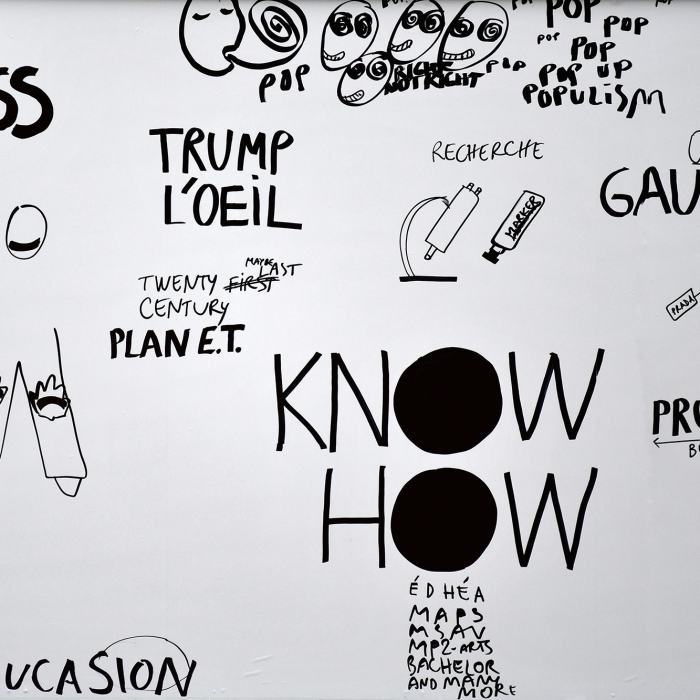 POP
POP
POP
POP
POP
RIGHT
NOT RIGHT
POP
POP UP
POPULISM
SS
TRUMP
L'OEIL
RECHERCHE
MARKER
GAU
MAYBE
LAST
TWENTY FIRST
CENTURY
PLAN E.T.
PRADA
KNOW
HOW
PRO
ÉDHÉA
MAPS
MSAV
MP2-ARTS
BACHELOR
AND MANY
MORE
UCASION